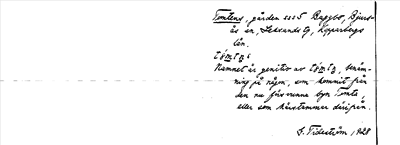 Tomtens, gården sss5 Baggbo, Bjurs-
ås sn, Leksands tg, Kopparbergs
län.
tómtṇs
Namnet är genitiv av tómtṇ, benäm-
ning på någon, som kommit från
den nu försvunna byn Tomte,
eller som härstammar därifrån.
G. Tideström, 1928